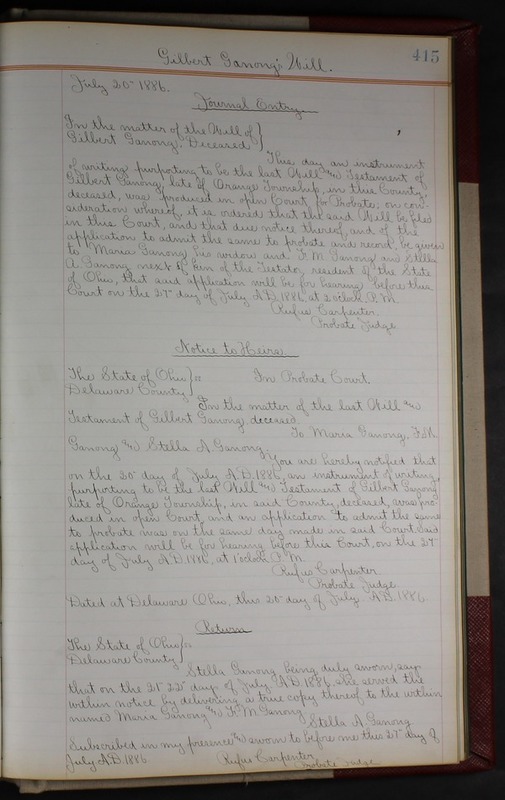 415
Gilbert Ganong's Will.
July 20" 1886.
Journal Entry.
In the matter of the Will of }
Gilbert Ganong, Deceased }
This day an instrument
of writing purporting to be the last Will & Testament of
Gilbert Ganong, late of Orange Township, in this County,
deceased, was produced in open Court for Probate, on con-
sideration whereof, it is ordered that the said Will be filed
in this Court, and that due notice thereof, and of the
application to admit the same to probate and record, be given
to Maria Ganong his widow and F. M. Ganong and Stella
A. Ganong next of kin of the Testator, resident of the State
of Ohio, that said application will be for hearing before this
Court on the 27" day of July A.D. 1886, at 2 oclock P.M.
Rufus Carpenter
Probate Judge
Notice to Heirs.
The State of Ohio } ss In Probate Court.
Delaware County }
In the matter of the last Will &
Testament of Gilbert Ganong, deceased.
To Maria Ganong, F.M.
Ganong & Stella A. Ganong,
You are hereby notified that
on the 20" day of July A.D. 1886, an instrument of writing,
purporting to be the last Will & Testament of Gilbert Ganong
late of Orange Township, in said County, deceased, was pro-
duced in open Court, and an application to admit the same
to probate was on the same day made in said Court. Said
application will be for hearing before this Court, on the 27"
day of July A.D. 1886, at 1 oclock P.M.
Rufus Carpenter
Probate Judge
Dated at Delaware Ohio, this 20" day of July A.D. 1886.
Return
The State of Ohio } ss
Delaware County }
Stella Ganong being duly sworn, say
that on the 21" 22" day of July A.D. 1886 she served the
within notice by delivering a true copy thereof to the within
named Maria Ganong & F. M. Ganong
Stella A. Ganong
Subscribed in my presence & sworn to before me this 27" day of
July A.D. 1886. Rufus Carpenter
Probate Judge